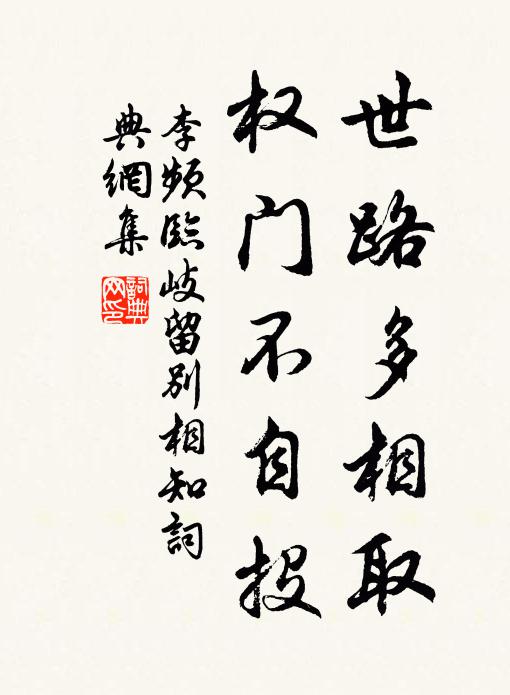 世路多相取
权门不自投
李频臨岐留别相知詞
典網集
詞典网印